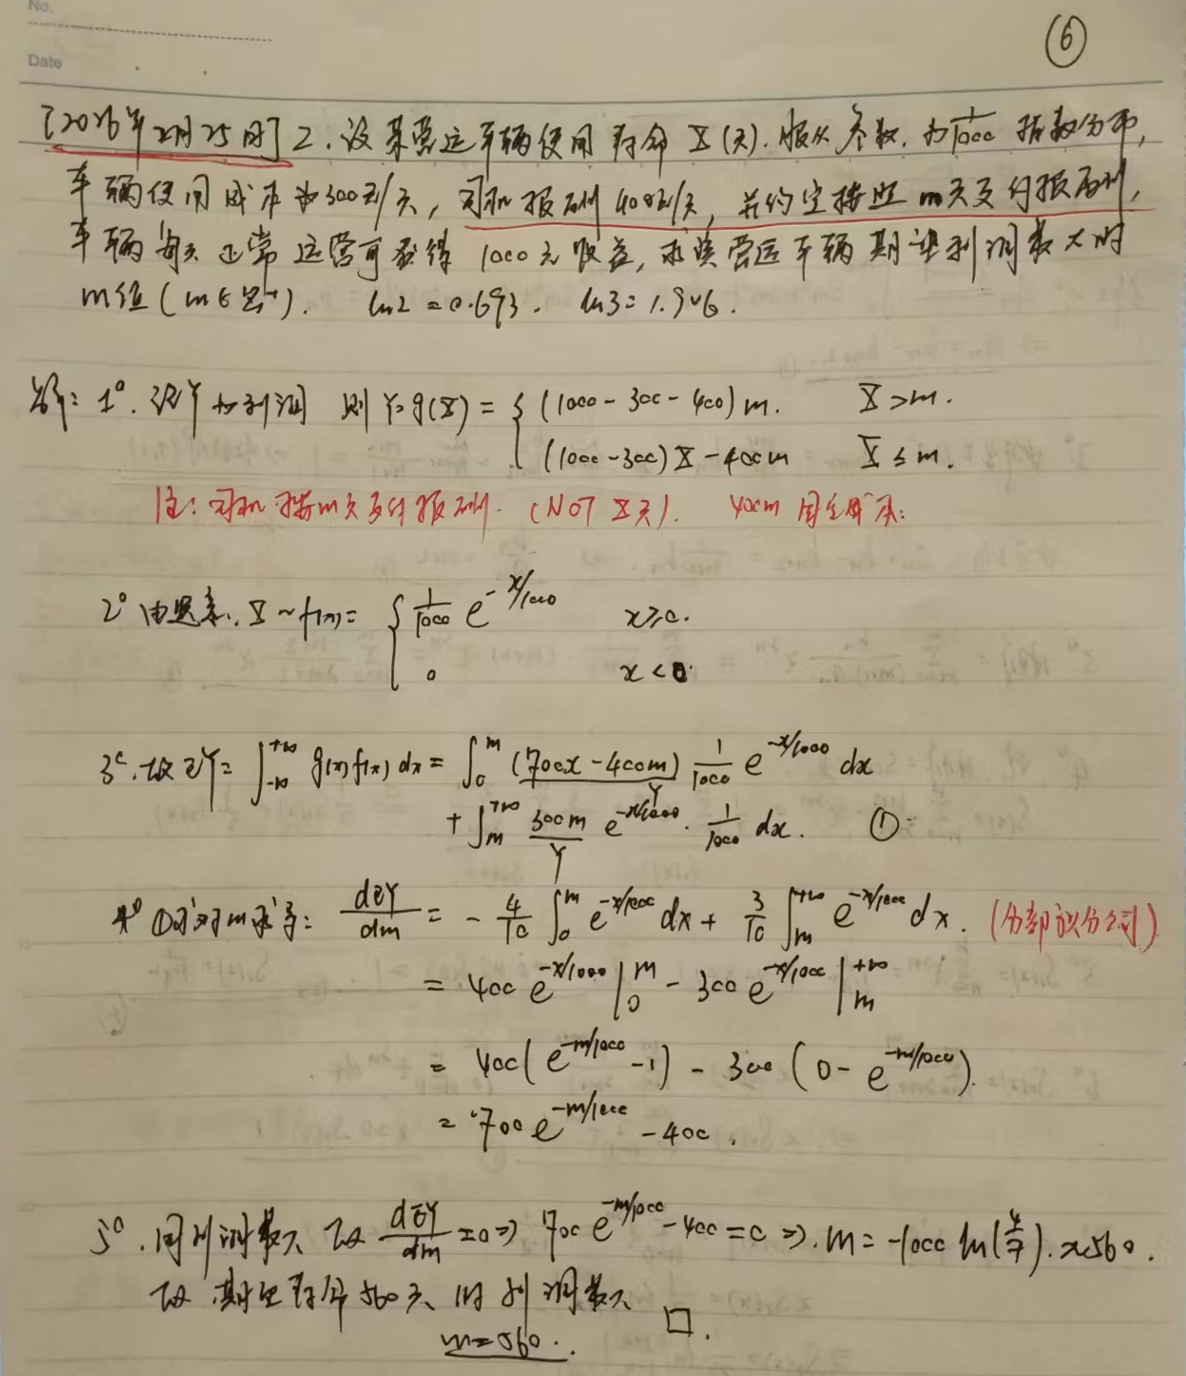 No.
Date
⑥
[2026年2月25日] 2. 设某营运车辆使用寿命 X(天). 服从参数. 为 1/1000 指数分布,
车辆使用成本为300元/天, 司机报酬400元/天, 并约定按照m天支付报酬,
车辆每天正常运营可获得 1000元收益, 求该营运车辆期望利润最大时
m值(m∈Z⁺). ln2=0.693. ln3=1.946.
解: 1°. 设Y为利润 则Y=g(X)= { (1000-300-400)m. X>m.
(1000-300)X-400m X≤m.
注: 司机按m天支付报酬. (NOT X天). 400m 固定成本.
2° 由题意, X~f(x)= { 1/1000 e^{-x/1000} x≥0.
0 x<0.
3°. 故EY= ∫_{-∞}^{+∞} g(x)f(x)dx = ∫_0^m (700x-400m) 1/1000 e^{-x/1000} dx
Y
+ ∫_m^{+∞} 300m e^{-x/1000}. 1/1000 dx. ①
Y
4° ①式对m求导: dEY/dm = - 4/10 ∫_0^m e^{-x/1000} dx + 3/10 ∫_m^{+∞} e^{-x/1000} dx. (分部积分)
= 400 e^{-x/1000} |_0^m - 300 e^{-x/1000} |_m^{+∞}
= 400( e^{-m/1000} -1) - 300 (0- e^{-m/1000}).
= 700 e^{-m/1000} -400.
5°. 因利润最大 故 dEY/dm =0 ⇒ 700 e^{-m/1000} -400=0 ⇒. m=-1000 ln(4/7). ≈560.
故 期望寿命560天 时利润最大 □.
m=560.